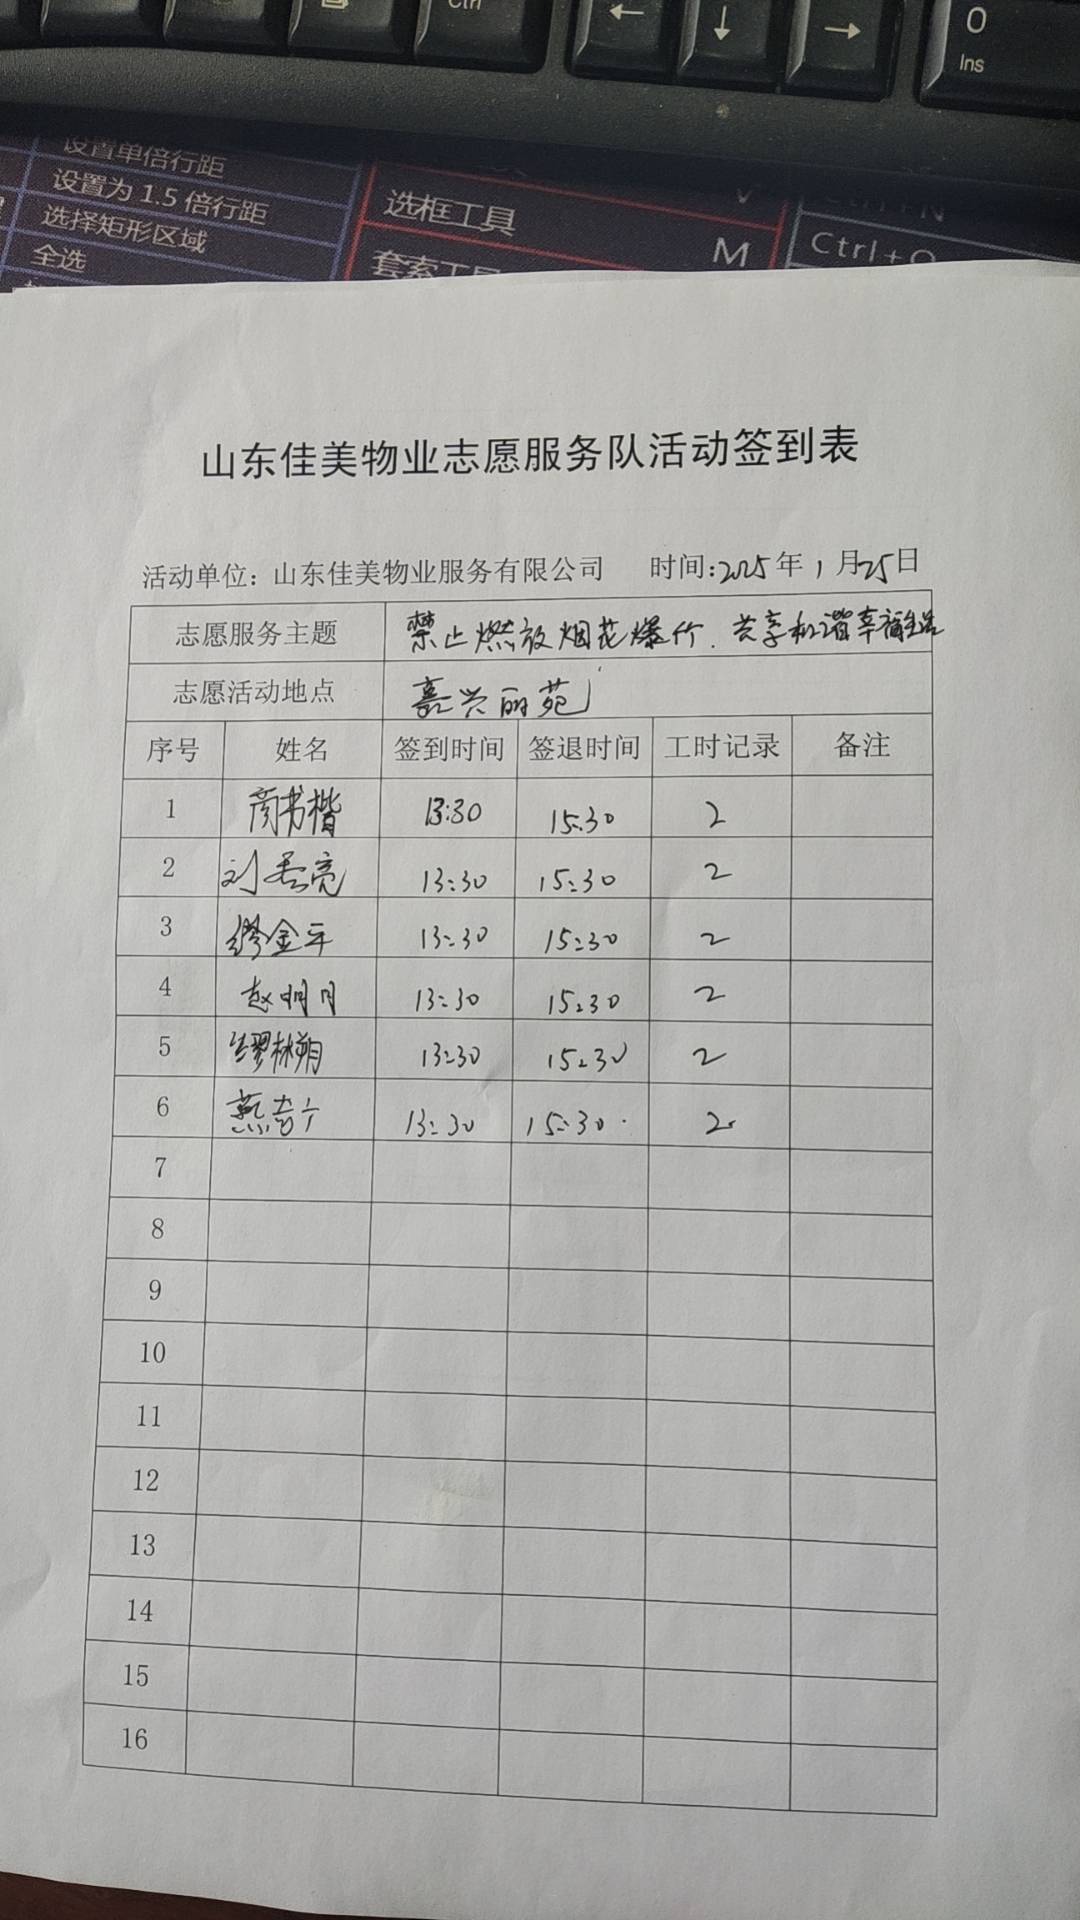 Ctrl
←
↓
→
0
Ins
设置单倍行距
设置为 1.5 倍行距
选择矩形区域
全选
选框工具
V
M
套索工具
Ctrl+N
Ctrl+O
山东佳美物业志愿服务队活动签到表
活动单位：山东佳美物业服务有限公司 时间：2025年1月25日
志愿服务主题 禁止燃放烟花爆竹．共享和谐幸福生活
志愿活动地点 嘉兴丽苑
序号 姓名 签到时间 签退时间 工时记录 备注
1 商书楷 13:30 15:30 2
2 刘 亮 13:30 15:30 2
3 缪金平 13:30 15:30 2
4 赵明月 13:30 15:30 2
5 缪林朔 13:30 15:30 2
6 燕 13:30 15:30 2
7
8
9
10
11
12
13
14
15
16